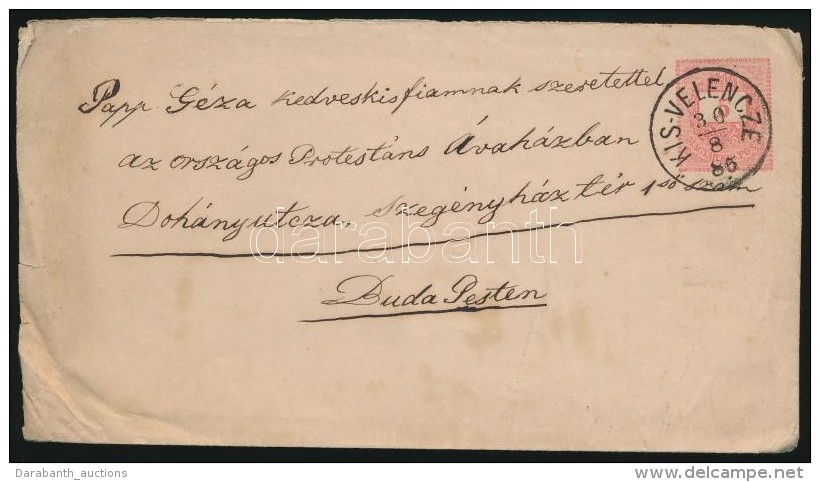 Papp Géza kedveskisfiamnak szeretettel
az országos Protestáns Ávaházban
Dohányutcza, szegényház tér 1ső szám
Buda Pesten
KIS-VELENCZE
30
8
86
darabanth
Darabanth_auctions
delcampe.net